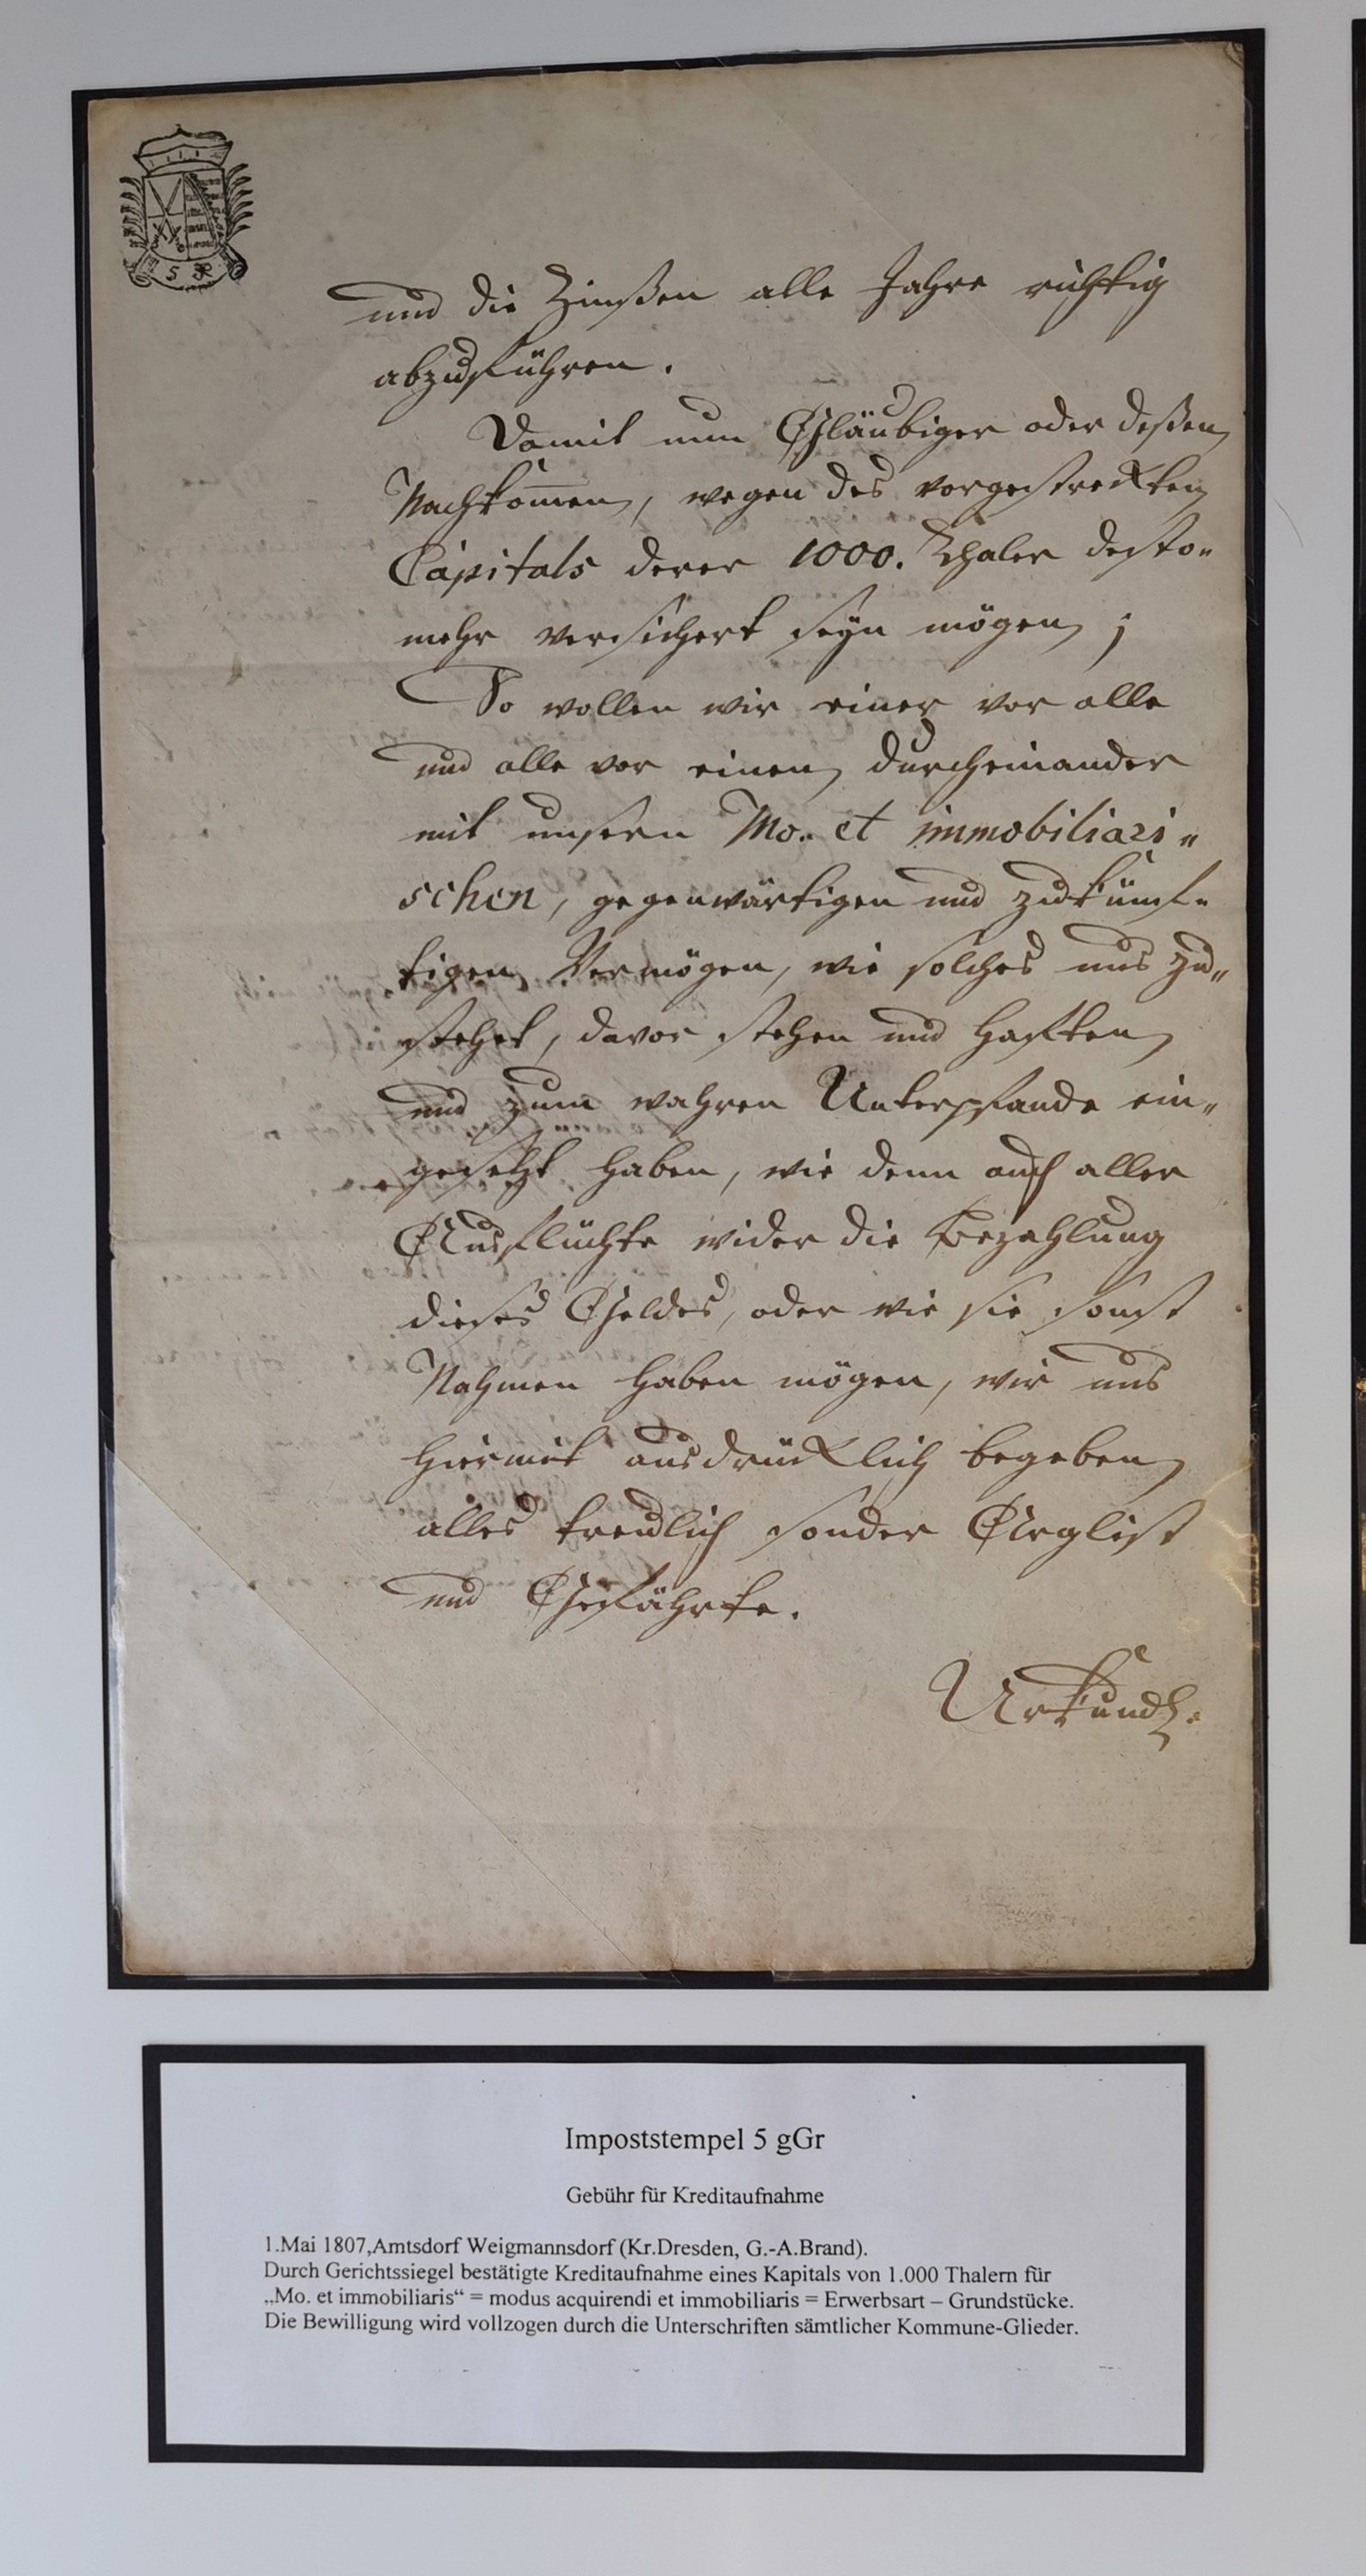 5
und die Zinßen alle Jahre richtig
abzuführen.
Damit nun Gläubiger oder deßen
Nachkom̅en, wegen des vorgestreckten
Capitals derer 1000. Thaler desto=
mehr versichert seyn mögen;
So wollen wir einer vor alle
und alle vor einen, durcheinander
mit unsern Mo. et immobiliari=
schen, gegenwärtigen und zukünf=
tigen Vermögen, wie solches uns zu=
stehet, davor stehen und haften,
und zum wahren Unterpfande ein=
gesetzt haben, wie denn auch aller
Ausflüchte wider die Bezahlung
dieses Geldes, oder wie sie sonst
Nahmen haben mögen, wir uns
hiermit ausdrücklich begeben,
alles treulich sonder Arglist
und Gefährte.
Urkundl.
Impoststempel 5 gGr
Gebühr für Kreditaufnahme
1.Mai 1807,Amtsdorf Weigmannsdorf (Kr.Dresden, G.-A.Brand).
Durch Gerichtssiegel bestätigte Kreditaufnahme eines Kapitals von 1.000 Thalern für
„Mo. et immobiliaris“ = modus acquirendi et immobiliaris = Erwerbsart – Grundstücke.
Die Bewilligung wird vollzogen durch die Unterschriften sämtlicher Kommune-Glieder.